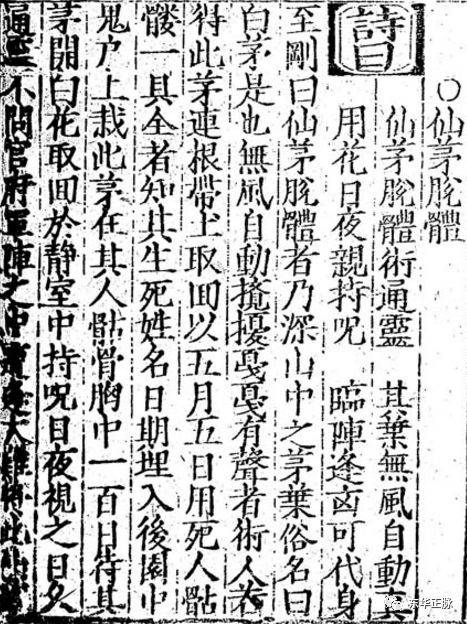 ○仙茅脫體
詩曰
仙茅脫體術通靈　其葉無風自動真
用花日夜親持呪　臨陣逢凶可代身
至剛曰仙茅脫體者乃深山中之茅葉俗名曰
白茅是也無風自動攪擾戞戞有聲者術人若
得此茅連根帶上取囬以五月五日用死人骷
髏一具全者知其生死姓名日期埋入後園中
鬼户上栽此茅在其人骷骨胸中一百日待其
茅開白花取囬於靜室中持呪日夜視之日久
通靈不問官府軍陣之中大難將此
东华正脉